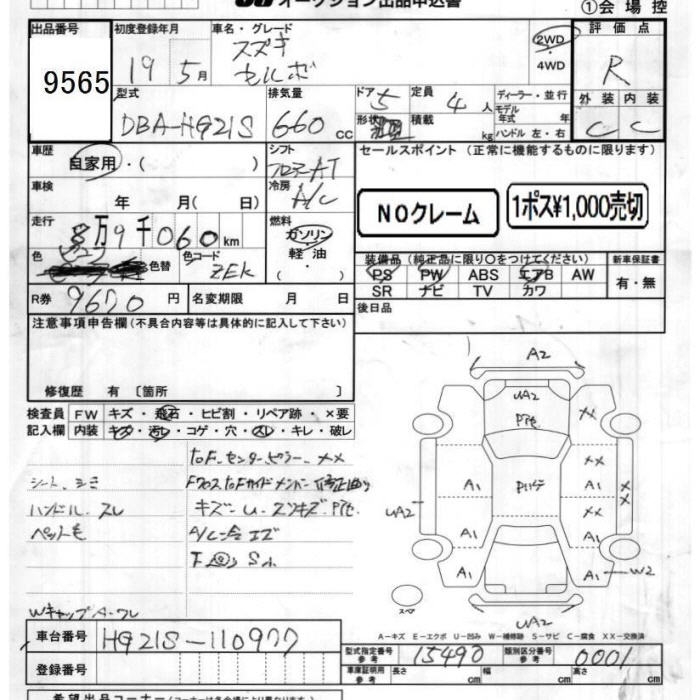 オークション出品申込書
①会場控
出品番号 初度登録年月 車名・グレード 評価点
9565 19 5月 スズキ セルボ 2WD・4WD R
外装 内装
C C
型式 排気量 ドア 定員 ディーラー・並行
DBA-HG21S 660cc 5 4人 モデル年式 年
形状 積載 kg ハンドル 左・右
車歴 シフト セールスポイント (正常に機能するものに限ります)
自家用・( ) フロアAT
車検 冷房
年 月( 日) A/C NOクレーム 1ポス¥1,000売切
走行 燃料
8万9千060km ガソリン
軽油・( )
色 色替 色コード
ZEK
装備品 (純正品に限り○をつけてください) 新車保証書
PS PW ABS エアB AW 有・無
SR ナビ TV カワ
R券 9670円 名変期限 月 日 後日品
注意事項申告欄(不具合内容等は具体的に記入して下さい)
修復歴 有 [箇所 ]
検査員 FW キズ・飛石・ヒビ割・リペア跡・×要
記入欄 内装 キズ・汚レ・コゲ・穴・スレ・キレ・破レ
シート、シミ
ハンドル、スレ
ペット毛
Wキャップ A・ワレ
右F、センターピラー、××
キズ-U、スリキズ、P他
A2
UA2
P他
××
××
A1
A1
××
××
UA2
A1
A1
A1
A1
W2
UA2
スペア
A-キズ E-エクボ U-凹み W-補修跡 S-サビ C-腐食 XX-交換済
車台番号 HG21S-110977
登録番号
型式指定番号 参考 15490 類別区分番号 参考 0001
車庫証明用 参考 長さ cm 幅 cm 高さ cm
希望出品コーナー